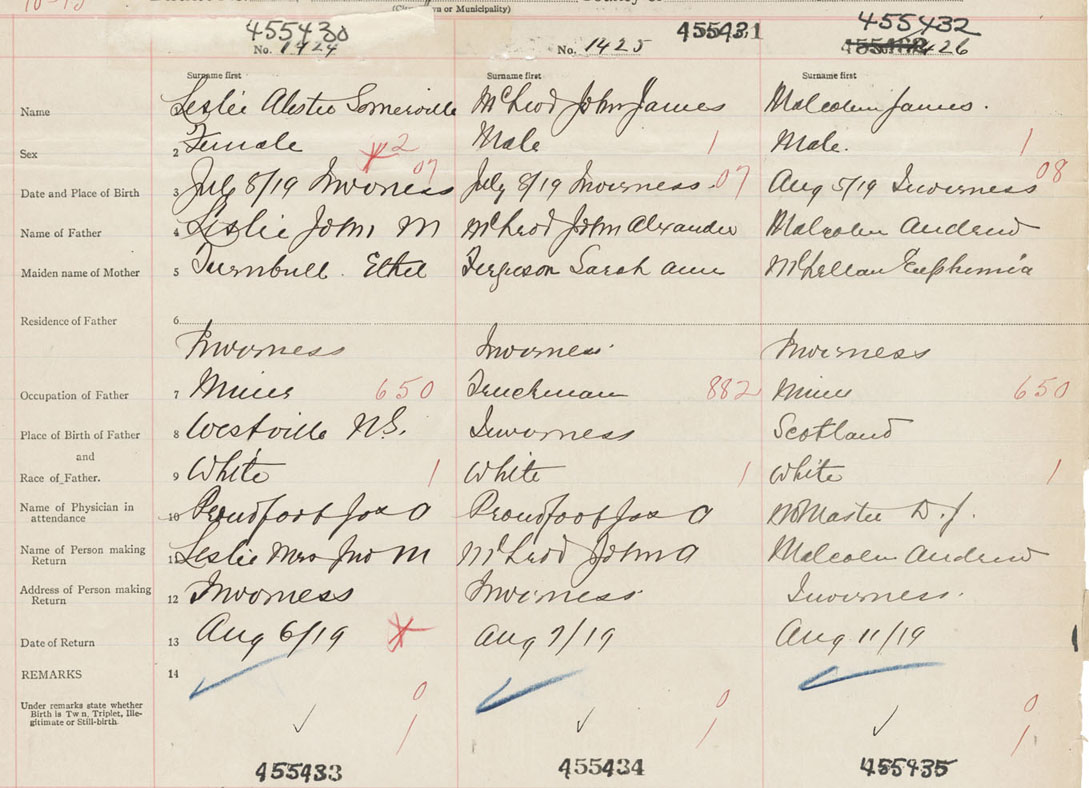 (City, Town or Municipality)
455430 455431 455432
No. 1424 No. 1425 1426
Surname first Surname first Surname first
Name Leslie Somerville McLeod John James Malcolm James.
Sex 2 Female 2 Male 1 Male. 1
Date and Place of Birth 3 July 8/19 Inverness 07 July 8/19 Inverness. 07 Aug 5/19 Inverness 08
Name of Father 4 Leslie John M McLeod John Alexander Malcolm Andrew
Maiden name of Mother 5 Turnbull Ethel Ferguson Sarah Ann McLellan Euphemia
Residence of Father 6
Inverness Inverness Inverness
Occupation of Father 7 Miner 650 Truckman 882 Miner 650
Place of Birth of Father 8 Westville N.S. Inverness Scotland
and
Race of Father. 9 White 1 White 1 White 1
Name of Physician in
attendance 10 Proudfoot Jas A Proudfoot Jas A McMaster D.J.
Name of Person making
Return 11 Leslie Mrs Jno M McLeod John A Malcolm Andrew
Address of Person making
Return 12 Inverness Inverness Inverness.
Date of Return 13 Aug 6/19 Aug 7/19 Aug 11/19
REMARKS 14
Under remarks state whether
Birth is Twn, Triplet, Ille-
gitimate or Still-birth.
0 0 0
1 1 1
455433 455434 455435